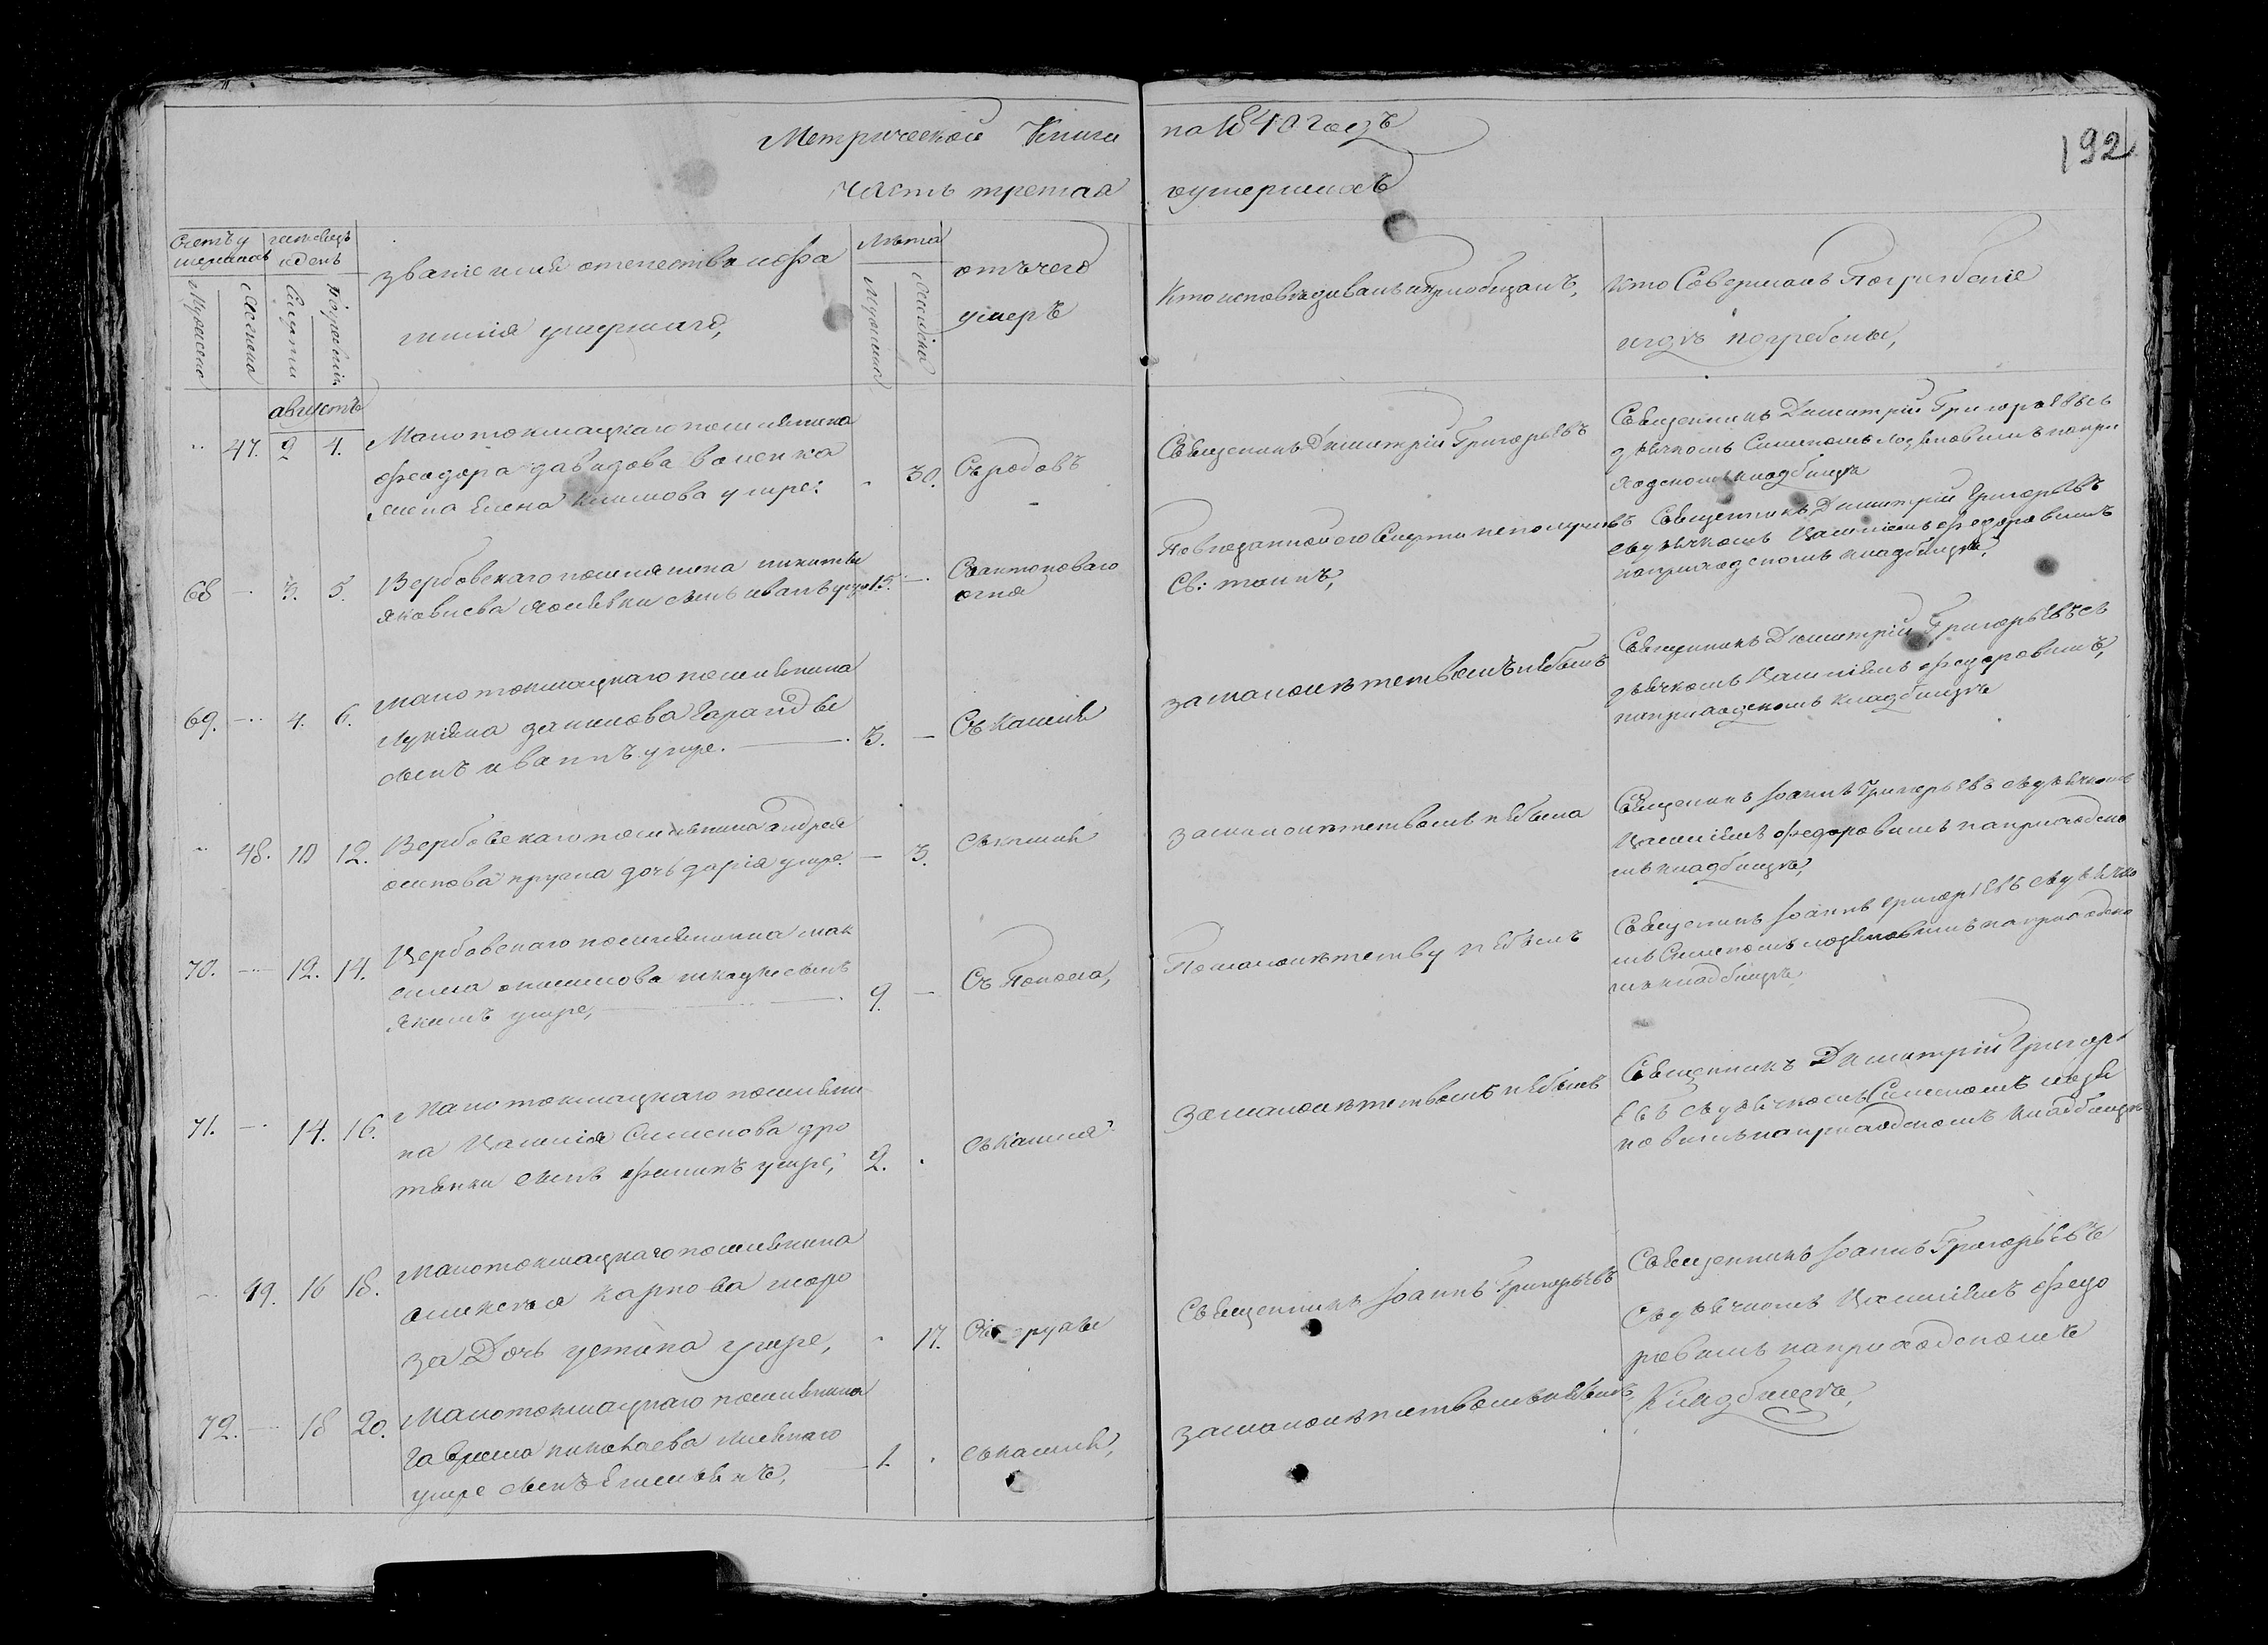 Метрической Книги на 1840 годъ
192
Часть третая оумершихъ
Счетъ у
мершихъ
Мужеска
Женска
месяцъ
и день
Смерти
Погребенія
званіе имя отечество и фа
милія умершаго,
Лѣта
Мужеска
Женска
отъ чего
умеръ
Кто исповѣдывалъ и приобщалъ,
Кто Совершалъ Погребеніе
и гдѣ погребены,
августъ
47. 2 4.
Малотокмацкаго поселянина
феодора давидова
жена елена климова умре:
30.
Съ родовъ
Священникъ Димитрій Григорьевъ
Священникъ Димитрій Григорьевъ съ
дьячкомъ Симеономъ на при
ходскомъ кладбищѣ
68 3. 5.
Вербовскаго поселянина никиты
яковлева сынъ иванъ умре
15.
Съ антоноваго
огня
По внезапной его Смерти не получилъ
Св: таинъ,
Священникъ Димитрій Григорьевъ
съ дьячкомъ Василіемъ Федоровымъ
на приходскомъ кладбищѣ,
69. 4. 6.
малотокмацкаго поселянина
Лукіяна данилова
сынъ иванъ умре.
3.
Съ кашлю
за малолѣтетвомъ небылъ
Священникъ Димитрій Григорьевъ съ
дьячкомъ Василіемъ Федоровымъ,
на приходскомъ кладбищѣ
48. 10 12.
Вербовскаго поселянина андрея
осипова дочь дарія умре.
3.
Съ кашлю
за малолѣтетвомъ небыла
Священникъ Іоаннъ Григорьевъ съ дьячкомъ
Василіемъ Федоровымъ на приходско
мъ кладбищѣ,
70. 12. 14.
Вербовскаго поселянина мак
сима сынъ
якимъ умре,
9.
Съ Поноса,
По малолѣтству небылъ
Священникъ Іоаннъ Григорьевъ съ дьячко
мъ Симеономъ на приходско
мъ кладбищѣ
71. 14. 16.
Малотокмацкаго поселяни
на Василія Симеонова дро
тянки сынъ филипъ умре;
2.
Съ кашля
За малолѣтетвомъ небылъ
Священникъ Димитрій Григорь
евъ съ дьячкомъ Симеономъ
на приходскомъ кладбищѣ
49. 16 18.
Малотокмацкаго поселянина
алексѣя карпова моро
за Дочь устина умре,
17.
Священникъ Іоаннъ Григорьевъ
Священникъ Іоаннъ Григорьевъ
Съ дьячкомъ Василіемъ Федо
ровымъ на приходскомъ
Кладбищѣ,
72. 18 20.
Малотокмацкаго поселянина
гаврила николаева
умре сынъ
1.
съ кашлю,
за малолѣтетвомъ небылъ,